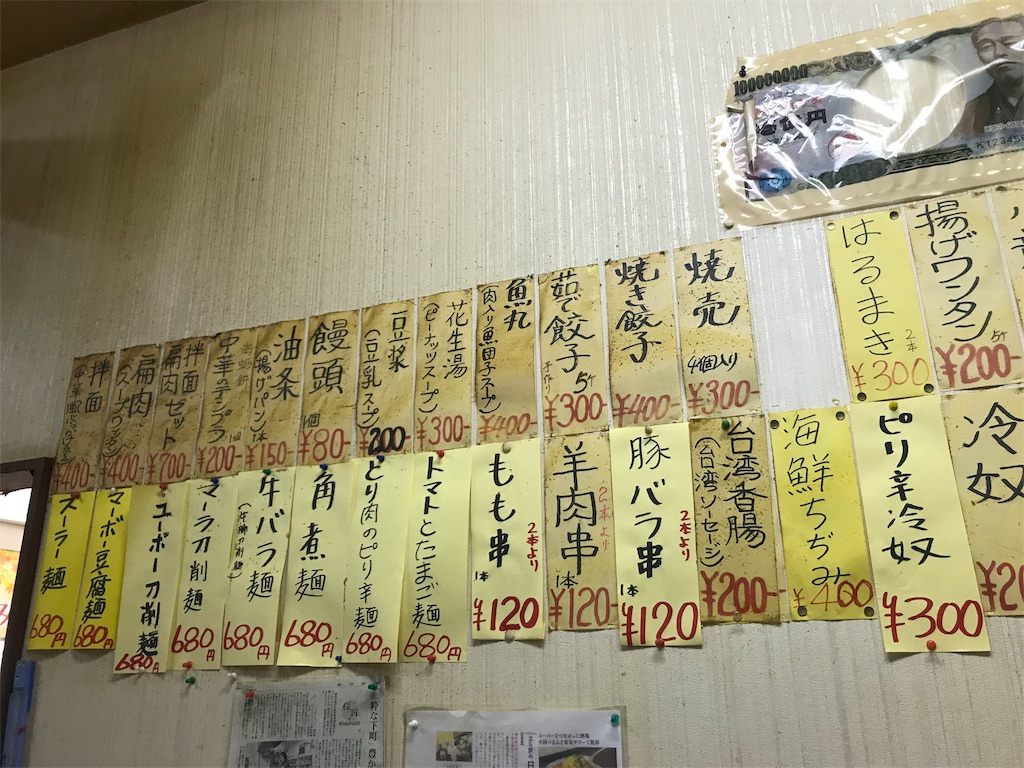 100000000
壱億円
K123456
揚げワンタン
5ケ
¥200-
はるまき
2本
¥300
焼売
4個入り
¥300-
焼き餃子
¥400-
茹で餃子
手作り
5ケ
¥300-
魚丸
(肉入り魚団子スープ)
¥400-
花生湯
(ピーナッツスープ)
¥300-
豆漿
(豆乳スープ)
¥200-
饅頭
1個
¥80-
油条
(揚げパン)
1本
¥150-
中華のテンプラ
1個
¥200-
拌面
扁肉セット
¥700-
扁肉
(スープワンタン)
¥400-
拌面
¥400-
冷奴
ピリ辛冷奴
¥300
海鮮ちぢみ
¥400
台湾香腸
(台湾ソーセージ)
¥200-
豚バラ串
2本より
1本
¥120
羊肉串
2本より
1本
¥120-
もも串
2本より
1本
¥120
トマトとたまご麺
680円
とり肉のピリ辛麺
680円
角煮麺
680円
牛バラ麺
680円
マーラ刀削麺
680円
ユーポー刀削麺
680円
マーボー豆腐麺
680円
ズーラー麺
680円